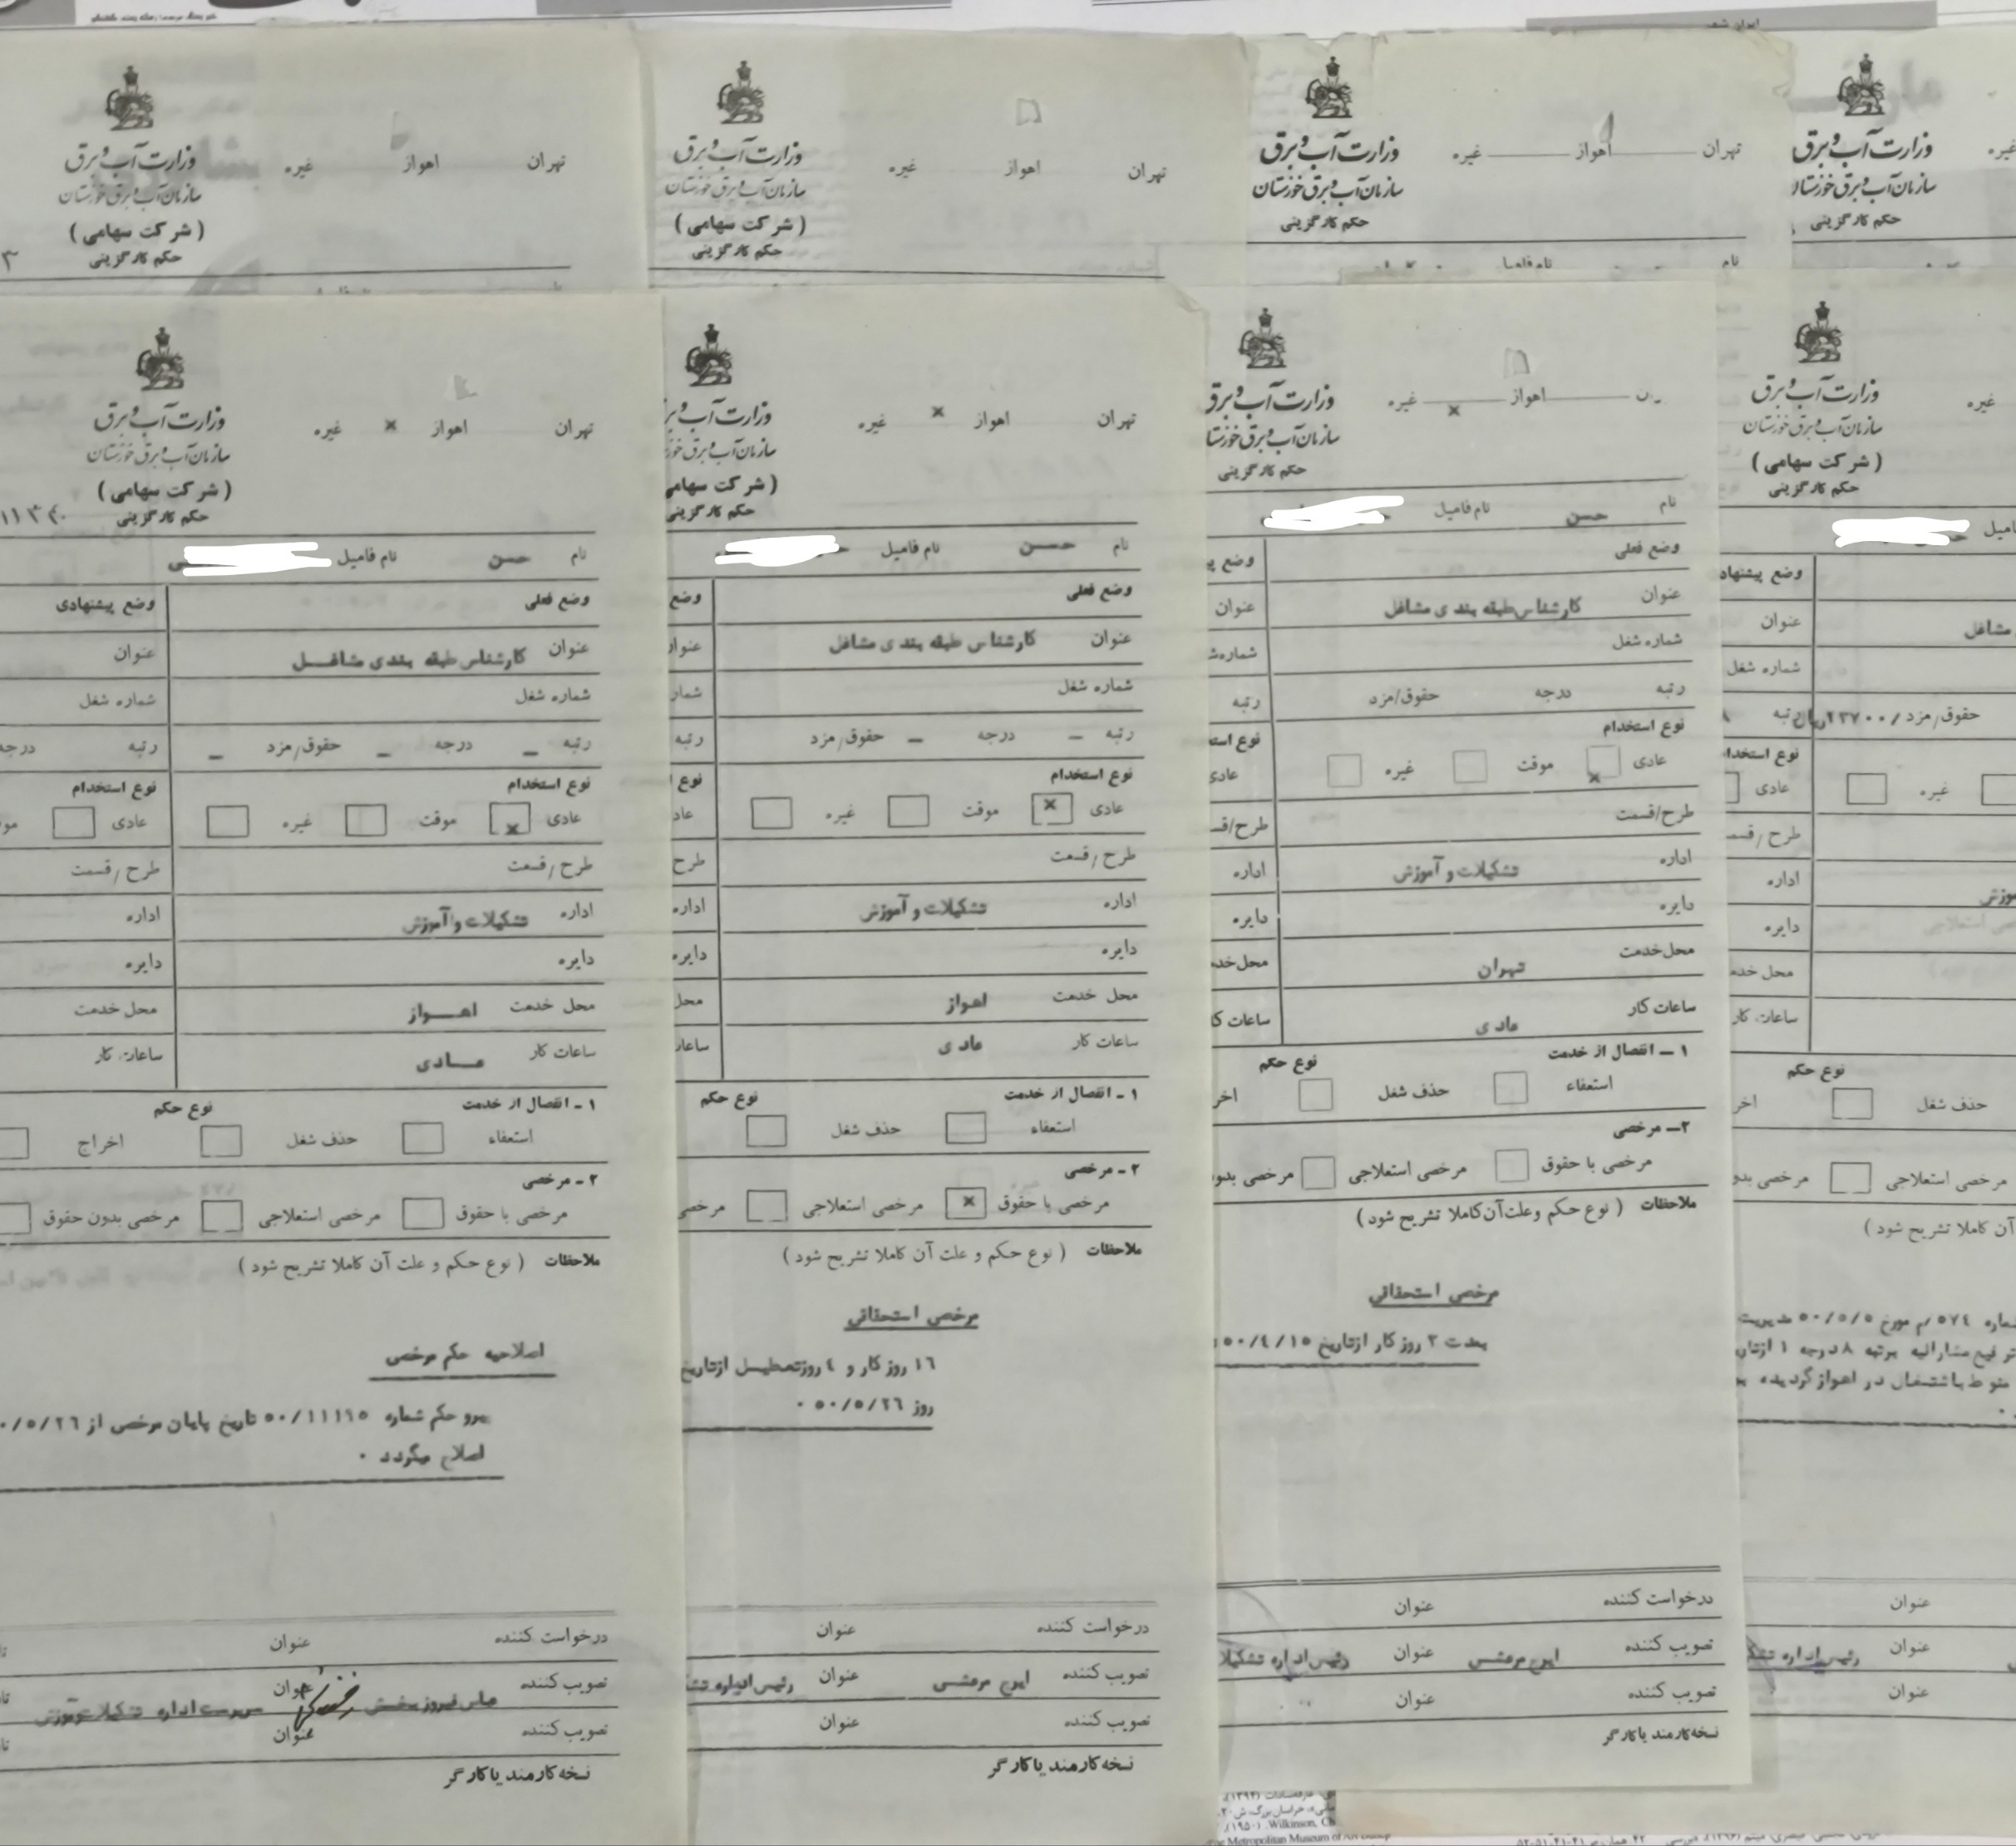 تهران اهواز غیره
وزارت آب و برق
سازمان آب و برق خوزستان
( شرکت سهامی )
حکم کارگزینی
تهران اهواز غیره
وزارت آب و برق
سازمان آب و برق خوزستان
( شرکت سهامی )
حکم کارگزینی
تهران اهواز غیره
وزارت آب و برق
سازمان آب و برق خوزستان
حکم کارگزینی
نام نام فامیل
غیره
وزارت آب و برق
حکم کارگزینی
غیره
وزارت آب و برق
سازمان آب و برق خوزستان
( شرکت سهامی )
حکم کارگزینی
وضع پیشنهادی
عنوان
مشاغل
شماره شغل
حقوق/مزد ۲۳۷۰۰/ریال رتبه ۸
نوع استخدام
غیره عادی
طرح/قسمت
اداره
دایره
ساعات کار
نوع حکم
حذف شغل
مرخصی استعلاجی
آن کاملا تشریح شود )
شماره ۵۷۴/م مورخ ۵۰/۵/۵ مدیریت
ترفیع مشارالیه برتبه ۸ درجه ۱ ازتاریخ
منوط باشتغال در اهواز گردیده
عنوان
عنوان رئیس اداره
عنوان
اهواز × غیره
وزارت آب و برق
حکم کارگزینی
نام حسن نام فامیل
وضع فعلی
عنوان کارشناس طبقه بندی مشاغل عنوان
شماره شغل
رتبه درجه حقوق/مزد رتبه
نوع استخدام
عادی × موقت غیره
طرح/قسمت
اداره تشکیلات و آموزش اداره
دایره دایره
محل خدمت تهران
ساعات کار عادی
۱ - انفصال از خدمت نوع حکم
استعفاء حذف شغل
۲- مرخصی
مرخصی با حقوق مرخصی استعلاجی
ملاحظات ( نوع حکم وعلت آن کاملا تشریح شود )
مرخصی استحقاقی
بمدت ۲ روز کار ازتاریخ ۵۰/۴/۱۵
درخواست کننده عنوان
تصویب کننده ایرج مرعشی عنوان رئیس اداره
تصویب کننده عنوان
نسخه کارمند یا کارگر
تهران اهواز × غیره
حکم کارگزینی
نام حسن نام فامیل
وضع فعلی وضع
عنوان کارشناس طبقه بندی مشاغل
شماره شغل
رتبه - درجه - حقوق/مزد رتبه
نوع استخدام
عادی × موقت غیره
طرح/قسمت طرح
اداره تشکیلات و آموزش اداره
دایره دایره
محل خدمت اهواز محل
ساعات کار عادی
۱ - انفصال از خدمت نوع حکم
استعفاء حذف شغل
۲ - مرخصی
مرخصی با حقوق × مرخصی استعلاجی
ملاحظات ( نوع حکم و علت آن کاملا تشریح شود )
مرخصی استحقاقی
۱۶ روز کار و ٤ روزتعطیل ازتاریخ
روز ۵۰/۵/۲۶ ۰
درخواست کننده عنوان
تصویب کننده ایرج مرعشی عنوان رئیس اداره
تصویب کننده عنوان
نسخه کارمند یا کارگر
تهران اهواز × غیره
وزارت آب و برق
سازمان آب و برق خوزستان
( شرکت سهامی )
حکم کارگزینی
نام حسن نام فامیل
وضع فعلی وضع پیشنهادی
عنوان کارشناس طبقه بندی مشاغل عنوان
شماره شغل شماره شغل
رتبه - درجه - حقوق/مزد - رتبه درجه
نوع استخدام نوع استخدام
عادی × موقت غیره عادی
طرح/قسمت طرح/قسمت
اداره تشکیلات و آموزش اداره
دایره دایره
محل خدمت اهواز محل خدمت
ساعات کار عادی ساعات کار
۱ - انفصال از خدمت نوع حکم
استعفاء حذف شغل اخراج
۲ - مرخصی
مرخصی با حقوق مرخصی استعلاجی مرخصی بدون حقوق
ملاحظات ( نوع حکم و علت آن کاملا تشریح شود )
اصلاحیه حکم مرخصی
پیرو حکم شماره ۵۰/۱۱۱۶۵ تاریخ پایان مرخصی از
اصلاح میگردد ۰
درخواست کننده عنوان
تصویب کننده عباس فیروزبخش عنوان سرپرست اداره تشکیلات و آموزش
تصویب کننده عنوان
نسخه کارمند یا کارگر